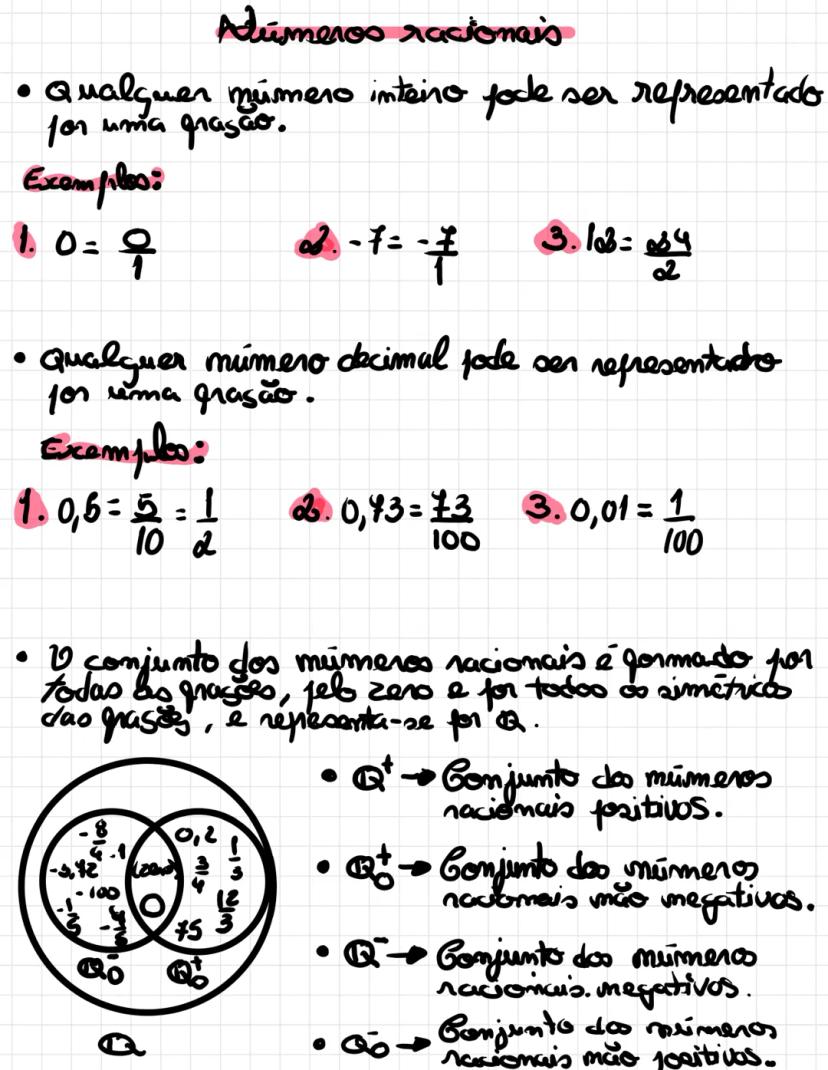 Números racionais
• Qualquer número inteiro pode ser representado
por uma fração.
Exemplos:
1. 0 = 0/1 2. -7 = -7/1 3. 12 = 24/2
• Qualquer número decimal pode ser representado
por uma fração.
Exemplos:
1. 0,5 = 5/10 = 1/2 2. 0,73 = 73/100 3. 0,01 = 1/100
• O conjunto dos números racionais é formado por
todas as frações, pelo zero e por todos os simétricos
das frações, e representa-se por Q.
• Q⁺ → Conjunto dos números
racionais positivos.
• Q₀⁺ → Conjunto dos números
racionais não negativos.
• Q⁻ → Conjunto dos números
racionais negativos.
• Q₀⁻ → Conjunto dos números
racionais não positivos.
-8/4 -1 0,2 1/3
(zero) 3/4
-100 0 12/3
75
Q₀⁻ Q₀⁺
Q